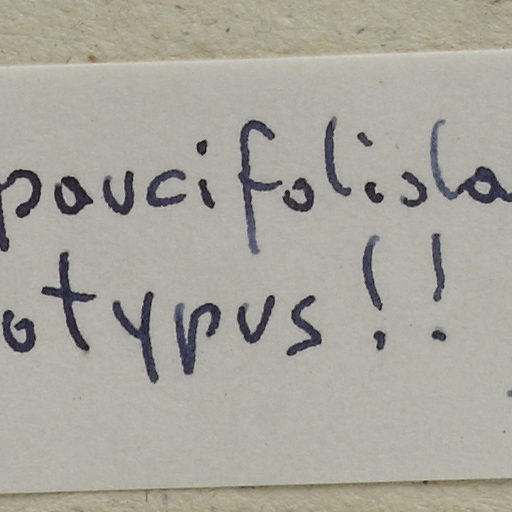 paucifoliola
otypus!!